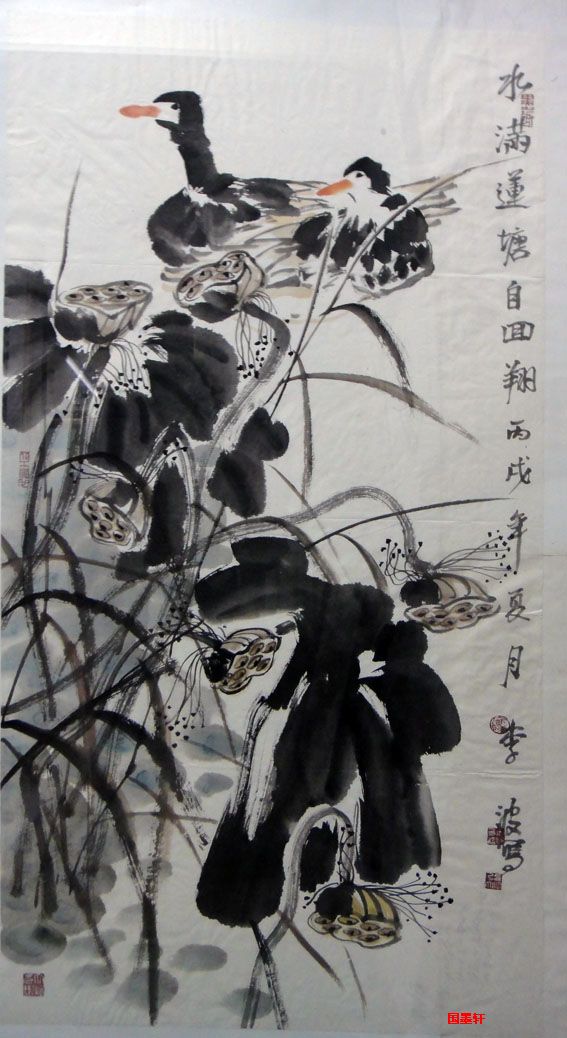 水满莲塘自回翔丙戌年夏月李波写
国墨轩